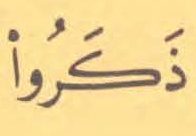 ذَكَرُواْ